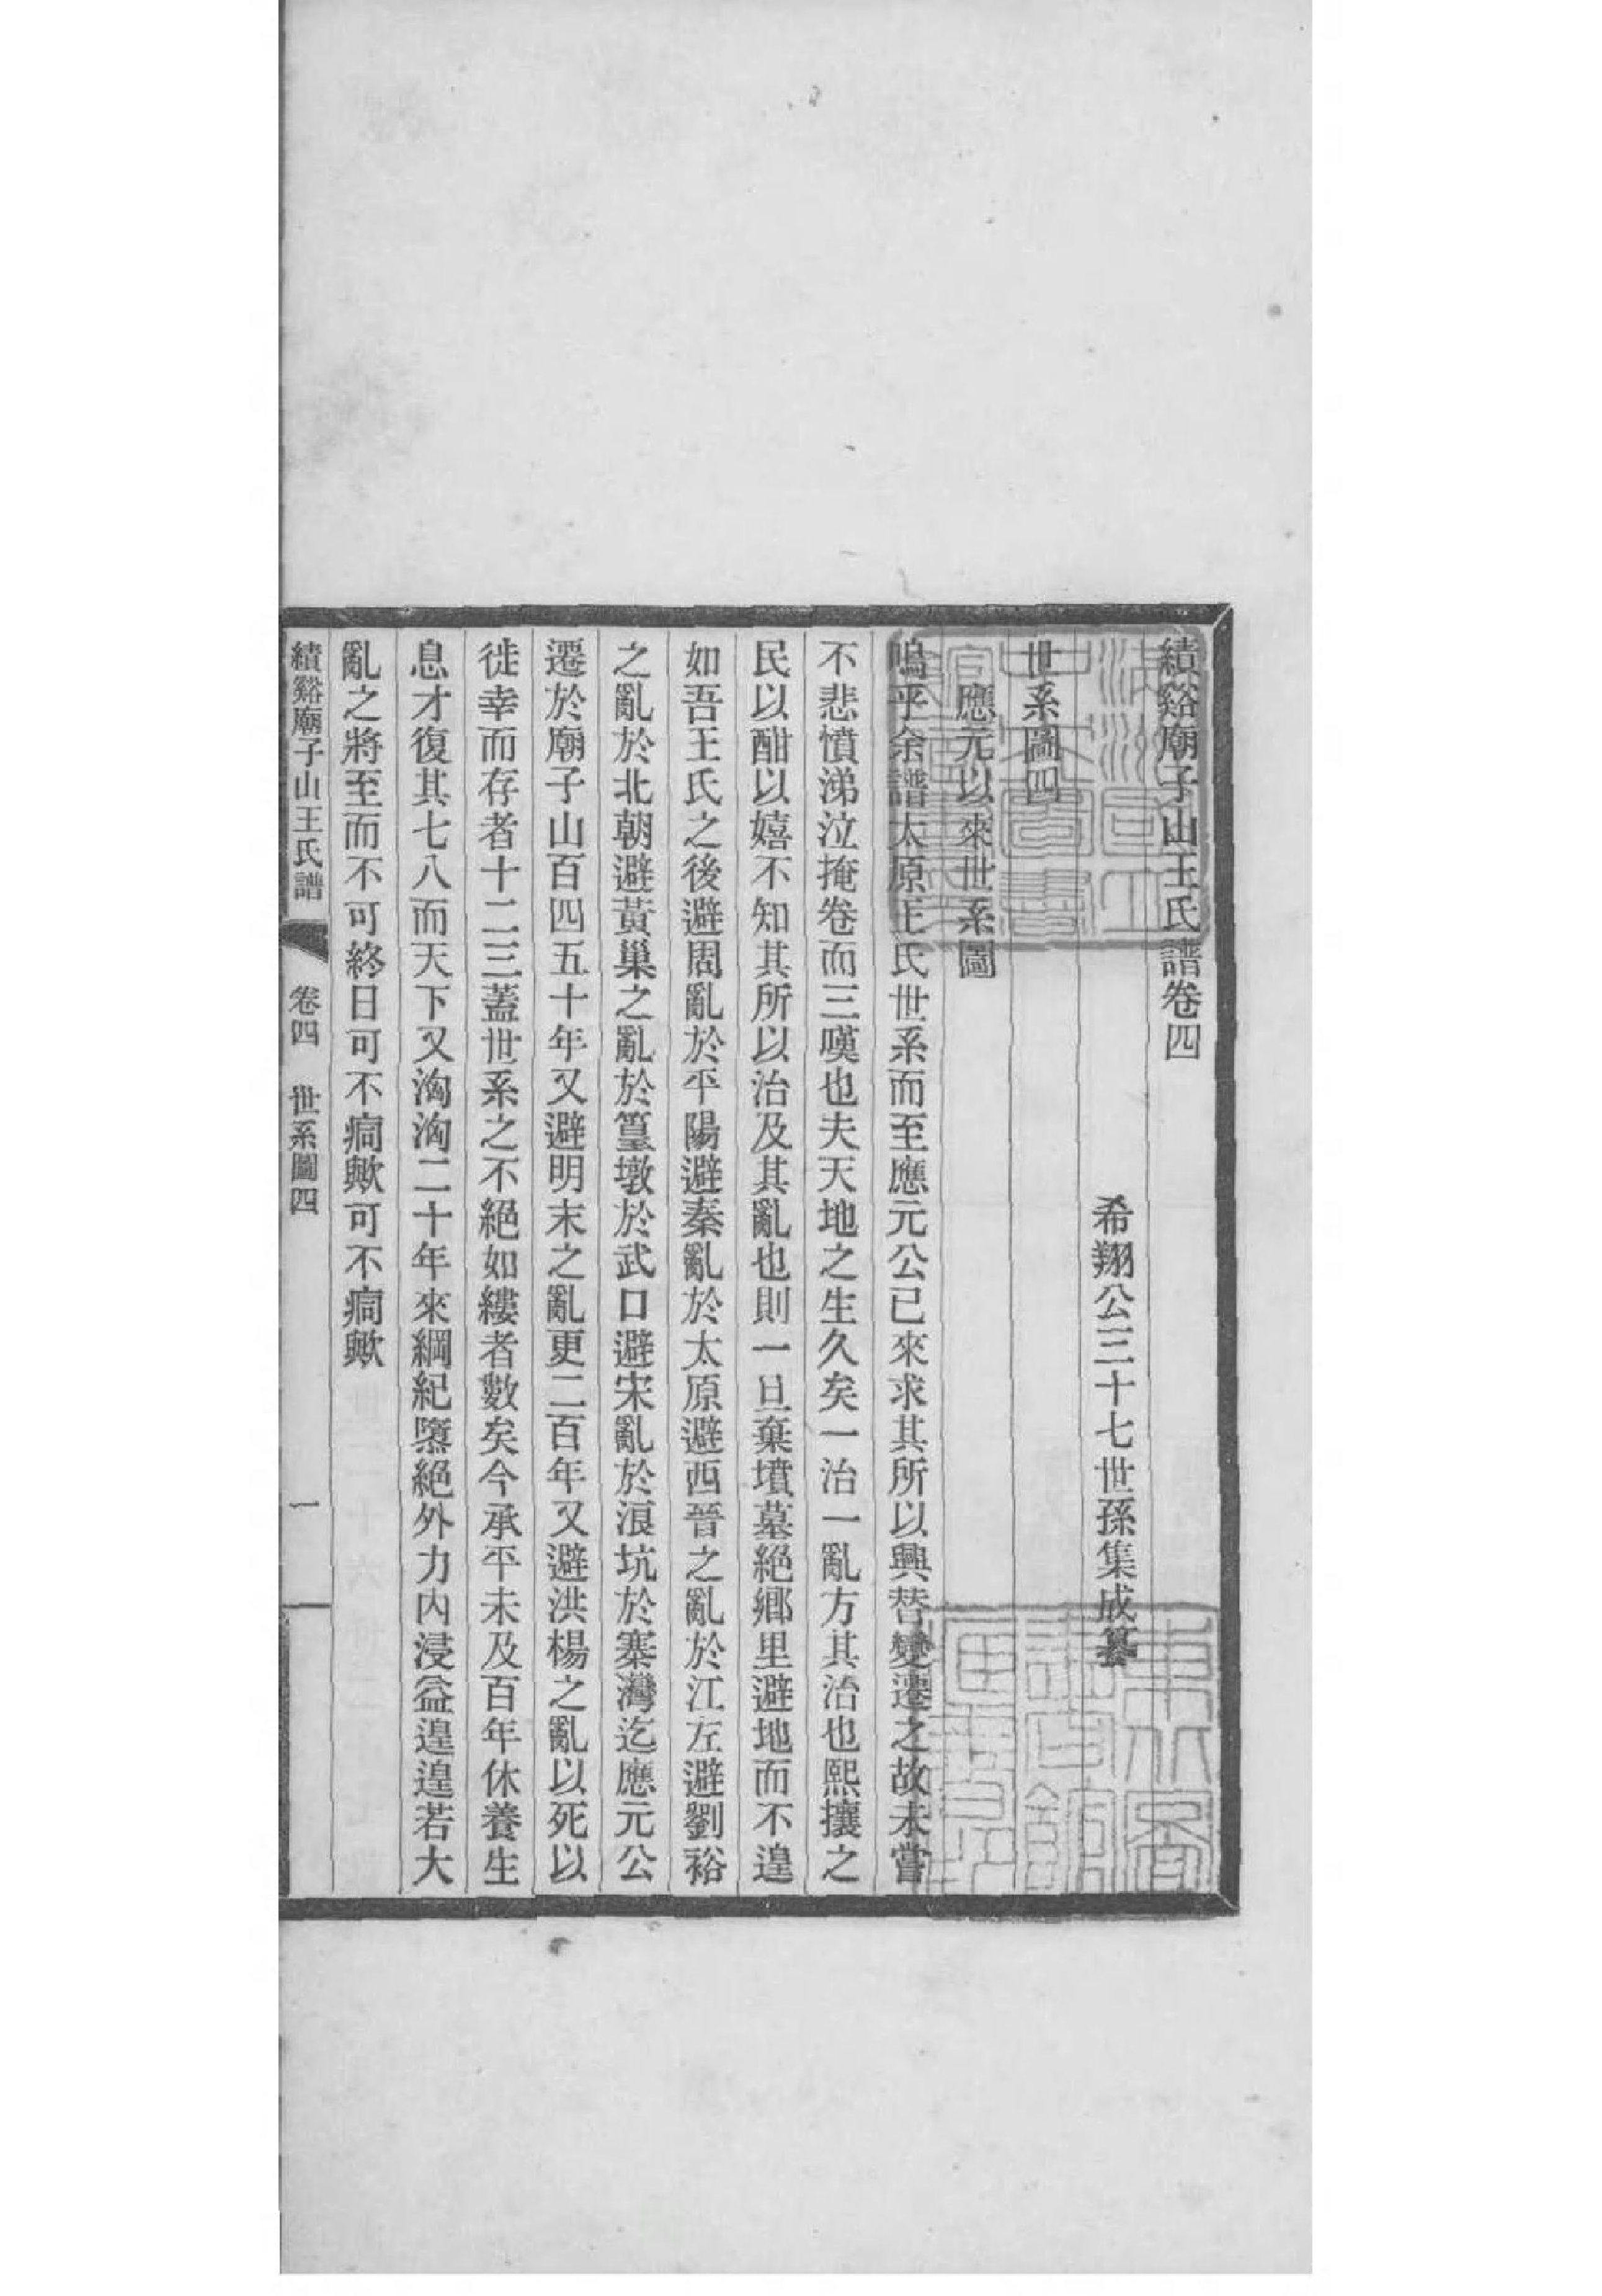 績谿廟子山王氏譜卷四
希翔公三十七世孫集成纂
世系圖四
應元以來世系圖
嗚乎余譜太原王氏世系而至應元公已來求其所以興替變遷之故未嘗
不悲憤涕泣掩卷而三嘆也夫天地之生久矣一治一亂方其治也熙攘之
民以酣以嬉不知其所以治及其亂也則一旦棄墳墓絕鄉里避地而不遑
如吾王氏之後避周亂於平陽避秦亂於太原避西晉之亂於江左避劉裕
之亂於北朝避黃巢之亂於篁墩於武口避宋亂於浪坑於寨灣迄應元公
遷於廟子山百四五十年又避明末之亂更二百年又避洪楊之亂以死以
徙幸而存者十二三蓋世系之不絕如縷者數矣今承平未及百年休養生
息才復其七八而天下又洶洶二十年來綱紀隳絕外力內浸益遑遑若大
亂之將至而不可終日可不痌歟可不痌歟
績谿廟子山王氏譜 卷四 世系圖四 一